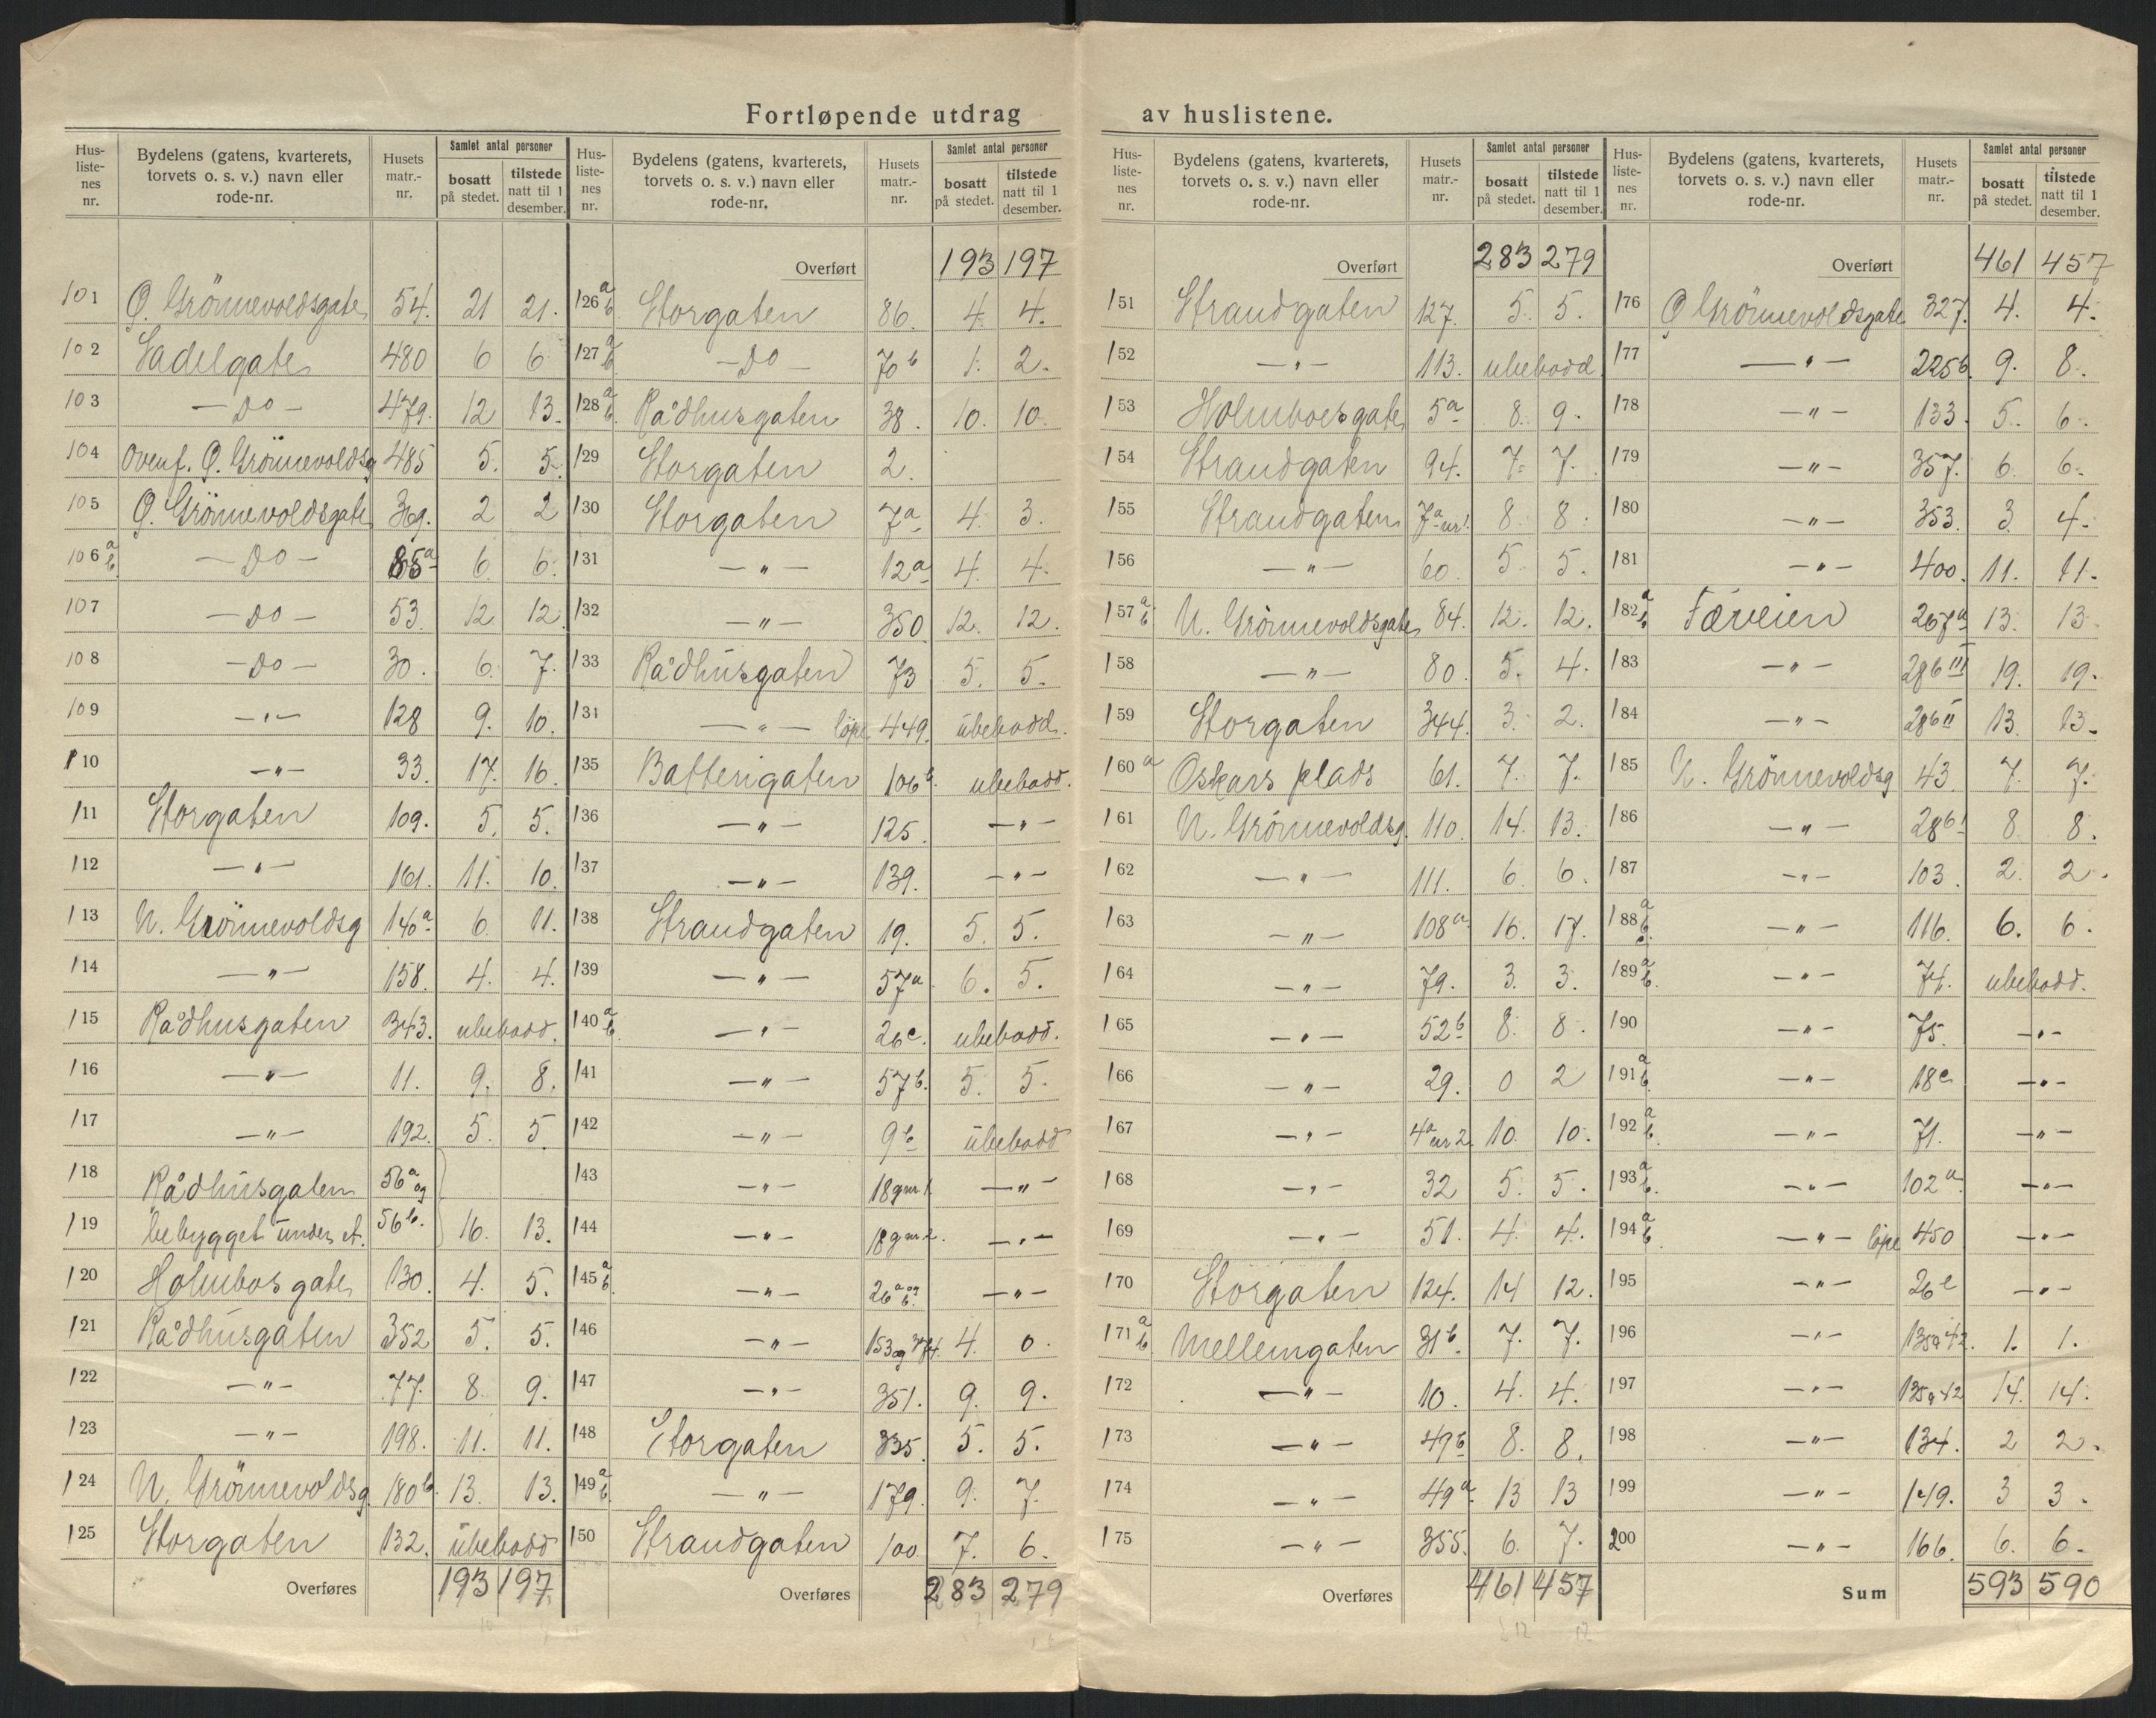 Fortløpende utdrag av huslistene.
Hus-listenes nr. | Bydelens (gatens, kvarterets, torvets o. s. v.) navn eller rode-nr. | Husets matr.-nr. | Samlet antal personer | bosatt på stedet. | tilstede natt til 1 desember.
101 Ø. Grönnevoldsgate 54. 21 21.
102 Vadelgate 480 6 6
103 — Do — 479. 12 13.
104 Ovenf. Ø. Grönnevoldsg 485 5. 5.
105 Ø. Grönnevoldsgate 369. 2 2
106 a b. — Do — 85a 6. 6.
107 — Do — 53. 12 12.
108 — Do — 30. 6. 7.
109 — " — 128 9. 10.
110 — " — 33. 17. 16.
111 Storgaten 109. 5. 5.
112 — " — 161. 11. 10.
113 N. Grönnevoldsg 146a 6. 11.
114 — " — 158. 4. 4.
115 Rådhusgaten 343. ubebodd.
116 — " — 11. 9. 8.
117 — " — 192. 5. 5.
118 Rådhusgaten 56a og
119 bebygget under et. 56b. 16. 13.
120 Holmbos gate 130. 4. 5.
121 Rådhusgaten 352 5. 5.
122 — " — 77. 8. 9.
123 — " — 198. 11. 11.
124 N. Grönnevoldsg. 180b. 13. 13.
125 Storgaten 132. ubebodd
Overføres 193 197
Hus-listenes nr. | Bydelens (gatens, kvarterets, torvets o. s. v.) navn eller rode-nr. | Husets matr.-nr. | Samlet antal personer | bosatt på stedet. | tilstede natt til 1 desember.
Overført 193 197
126 a b Storgaten 86. 4. 4.
127 a b. — Do — 70b 1. 2.
128 a b. Rådhusgaten 38. 10. 10.
129 Storgaten 2.
130 Storgaten 7a 4. 3.
131 — " — 12a 4. 4.
132 — " — 350 12. 12.
133 Rådhusgaten 73 5. 5.
134 — " — löpe 449. ubebodd.
135 Batterigaten 106b. ubebodd.
136 — " — 125. — " —
137 — " — 139. — " —
138 Strandgaten 19. 5. 5.
139 — " — 57a. 6. 5.
140 a b. — " — 26c. ubebodd.
141 — " — 57b. 5. 5.
142 — " — 9b ubebodd
143 — " — 18g nr. 1. — " —
144 — " — 18g nr. 2. — " —
145 a b. — " — 26a og b. — " —
146 — " — 153 og 374. 4. 0.
147 — " — 351. 9. 9.
148 Storgaten 335. 5. 5.
149 a b. — " — 179. 9. 7.
150 Strandgaten 100 7. 6.
Overføres 283 279
Hus-listenes nr. | Bydelens (gatens, kvarterets, torvets o. s. v.) navn eller rode-nr. | Husets matr.-nr. | Samlet antal personer | bosatt på stedet. | tilstede natt til 1 desember.
Overført 283 279
151 Strandgaten 127. 5. 5.
152 — " — 113. ubebodd.
153 Holmboesgate 5a 8. 9.
154 Strandgaten 94. 7. 7.
155 Strandgaten 7a nr 1. 8. 8.
156 — " — 60. 5. 5.
157 a b N. Grönnevoldsgate 84. 12. 12.
158 — " — 80. 5. 4.
159 Storgaten 344. 3. 2.
160 a Oskars plads 61. 7. 7.
161 N. Grönnevoldsg. 110. 14. 13.
162 — " — 111. 6. 6.
163 — " — 108a. 16. 17.
164 — " — 79. 3. 3.
165 — " — 52b 8. 8.
166 — " — 29. 0 2
167 — " — 4a nr 2. 10. 10.
168 — " — 32 5. 5.
169 — " — 51. 4. 4.
170 Storgaten 124. 14 12.
171 a b Mellemgaten 31b. 7. 7.
172 — " — 10. 4. 4.
173 — " — 49b 8. 8.
174 — " — 49a. 13 13
175 — " — 355. 6. 7.
Overføres 461 457
Hus-listenes nr. | Bydelens (gatens, kvarterets, torvets o. s. v.) navn eller rode-nr. | Husets matr.-nr. | Samlet antal personer | bosatt på stedet. | tilstede natt til 1 desember.
Overført 461 457
176 Ø Grönnevoldsgate 327. 4. 4.
177 — " — 225b. 9. 8.
178 — " — 133. 5. 6.
179 — " — 357. 6. 6.
180 — " — 353. 3. 4.
181 — " — 400. 11. 11.
182 a b Fæveien 267a 13. 13.
183 — " — 286 III 19. 19.
184 — " — 286 II 13. 13.
185 N. Grönnevoldsg 43. 7. 7.
186 — " — 286 I 8. 8.
187 — " — 103. 2. 2.
188 a b c. — " — 116. 6. 6.
189 a b. — " — 74. ubebodd.
190 — " — 75. — " —
191 a b. — " — 18c — " —
192 a b. — " — 71. — " —
193 a b. — " — 102a. — " —
194 a b. — " — löpe 450 — " —
195 — " — 26e — " —
196 — " — 1. 1.
197 — " — 14. 14.
198 — " — 134. 2 2.
199 — " — 149. 3 3.
200 — " — 166. 6. 6.
Sum 593 590